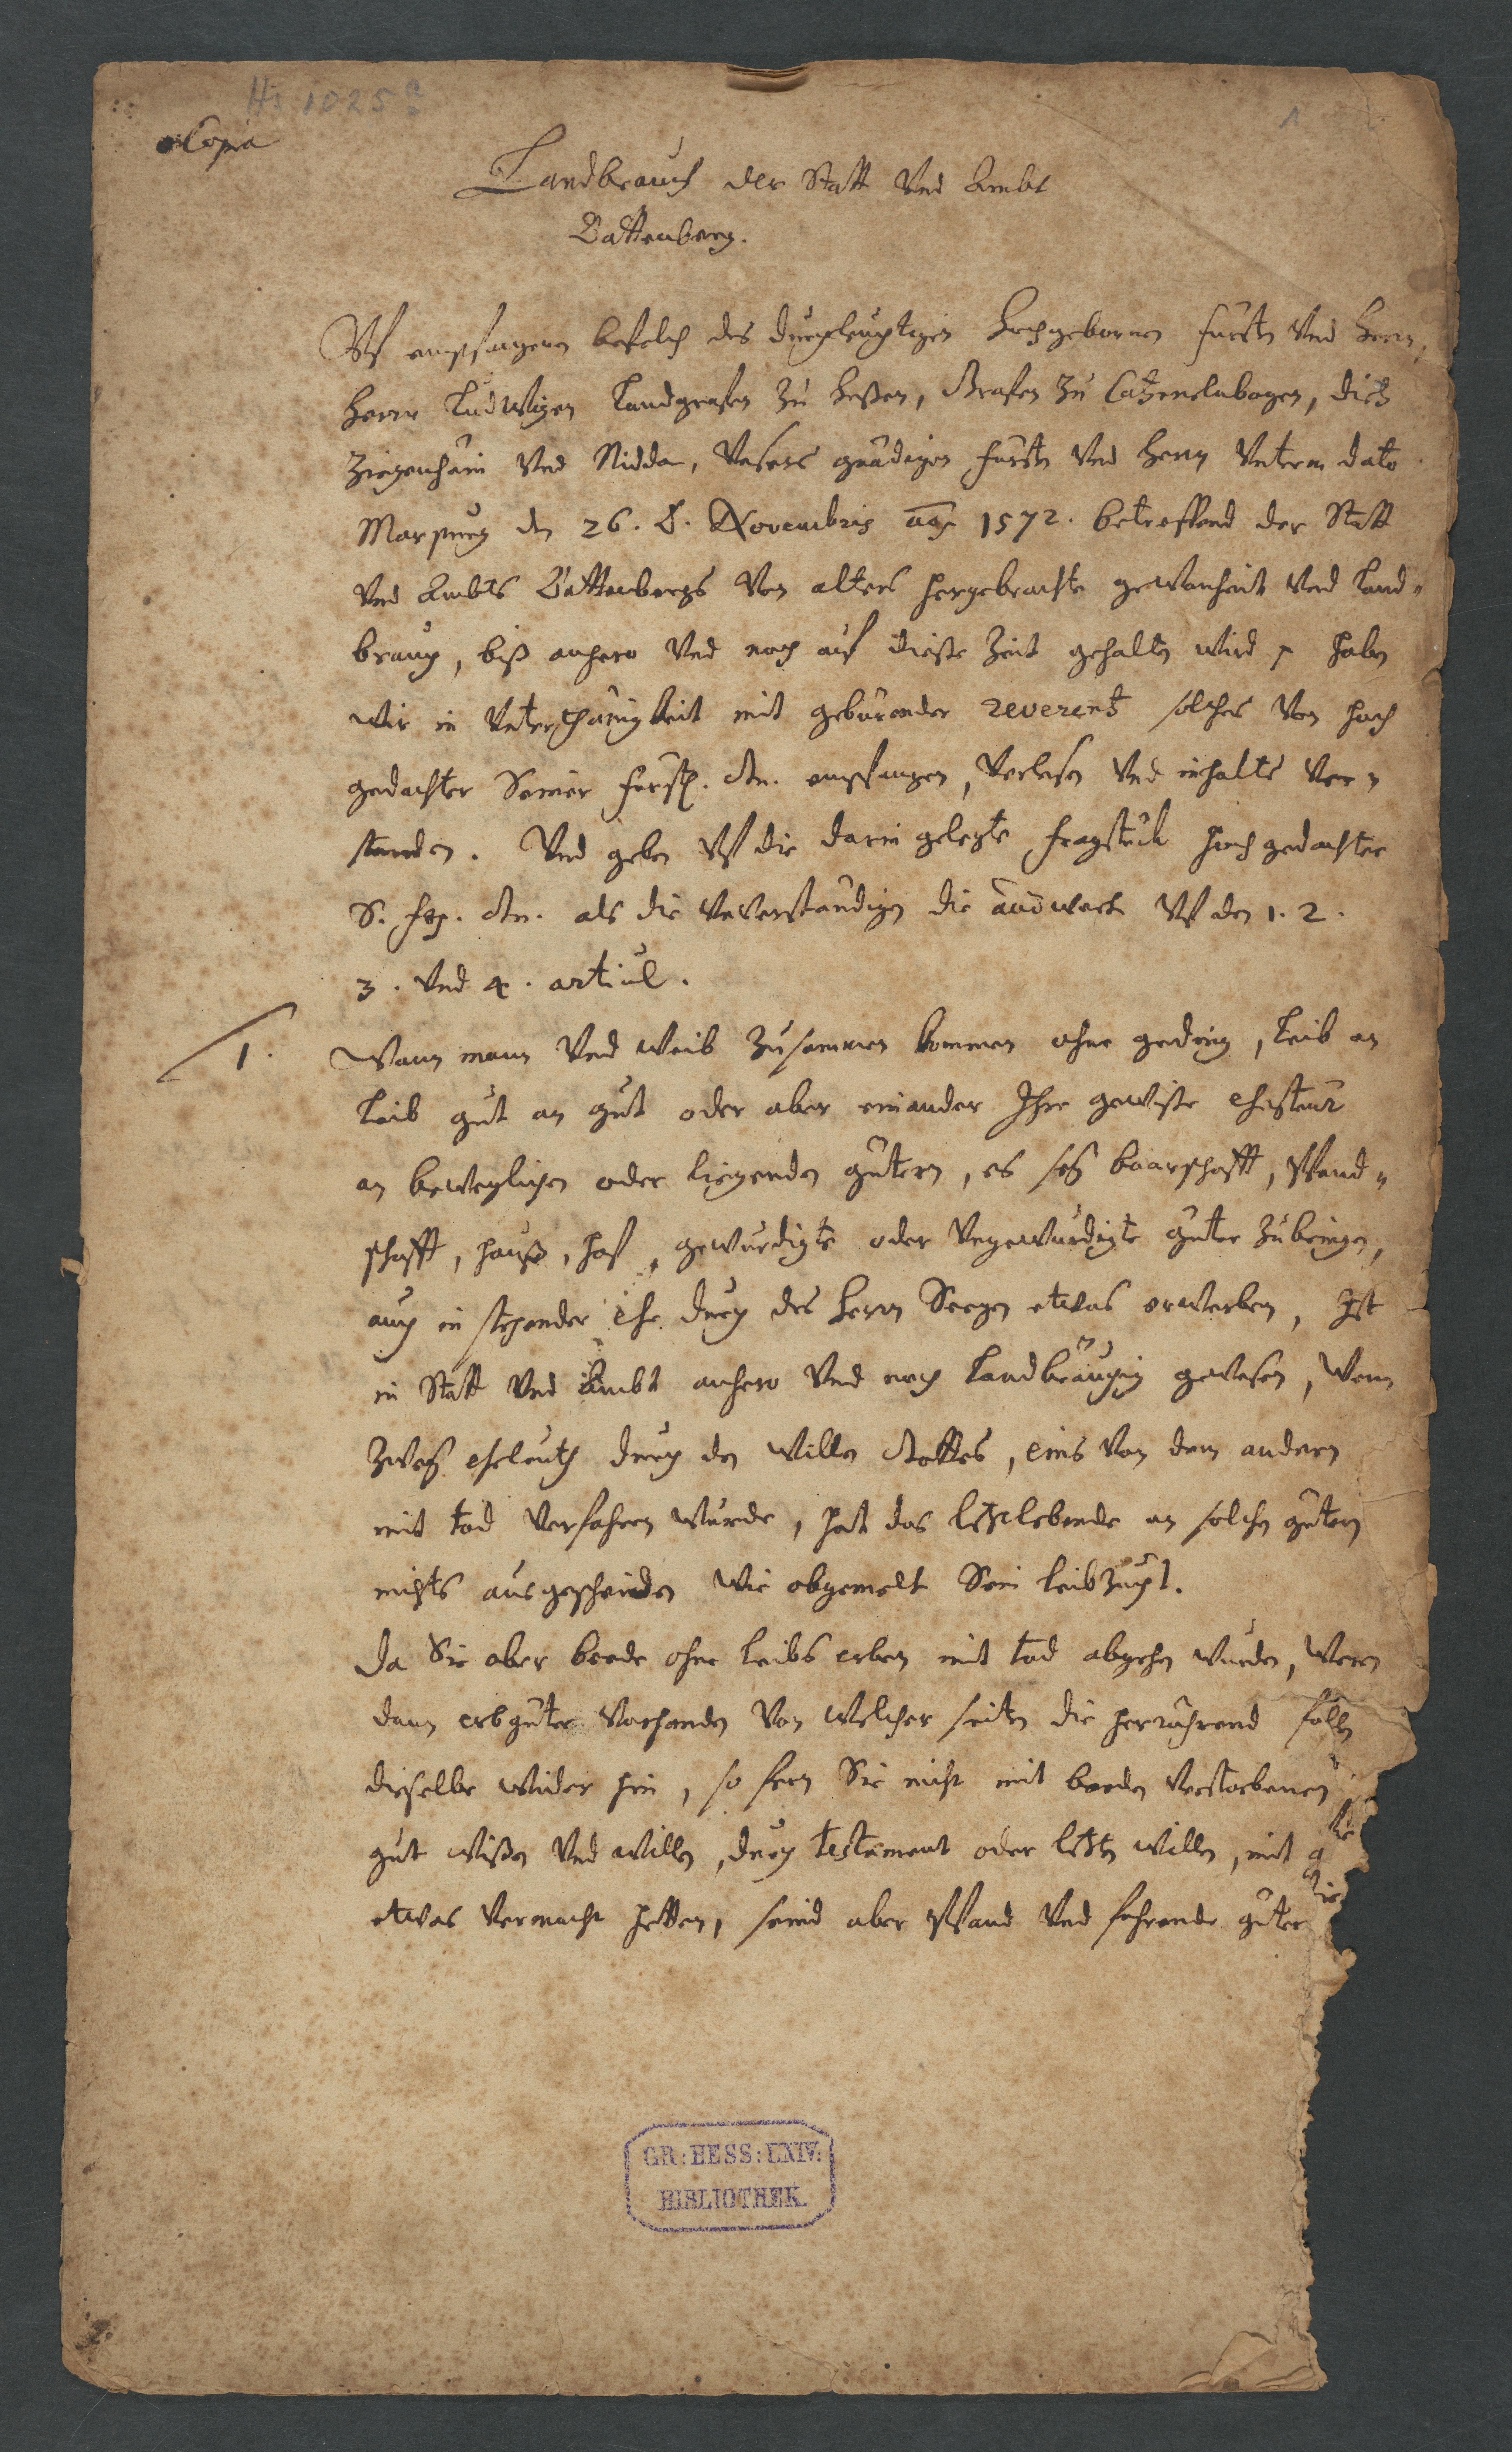 Hs 1025a
1
Copia
Landbrauch der Statt Vnd Ambt
Battenberg.
Vf empfangenen befelch des durchleuchtigen Hochgebornen fürsten Vnd Herrn,
Herrn Ludwigen Landgrafen zu Heßen, Grafen zu Catzenelnbogen, dietz
Ziegenhain Vnd Nidda, Vnsers gnädigen fürsten Vnd Herrn Vnterm dato
Marpurg den 26. Novembris 1572. betreffend der Statt
Vnd Ambts Battenbergs Von alters hergebrachte gewonheit Vnd Land-
brauch, biß anhero Vnd noch auf dieße Zeit gehalten wird, haben
wir in Vnterthänigkeit mit gebürender reverentz solches Von hoch
gedachter Seiner fürstl. Gn. empfangen, Verlesen Vnd inhalts Ver-
standen. Vnd geben Vf die darin gelegte fragstück hochgedachter
S. f. Gn. als die Vnverständigen die andwort Vf den 1. 2.
3. Vnd 4. articul.
1. Wann mann Vnd weib zusammen kommen ohne geding, leib an
leib gut an gut oder aber einander Ihre gewisse ehesteur
an beweglichen oder liegenden gütern, es sey baarschafft, Pfand-
schafft, hauß, hof, gewürdigte oder Vngewürdigte güter zubringen,
auch in stehender ehe durch des Herrn Seegen etwas erwerben, Ist
in Statt Vnd Ambt anhero Vnd noch Landbräuchig gewesen, Wenn
zwey eheleuth durch den willen Gottes, eins Von dem andern
mit tod Verfahren würde, hat das letztlebende an solchen gütern
nichts ausgescheiden wie obgemelt Sein leibzucht.
Da Sie aber beede ohne leibs erben mit tod abgehen würden, Weren
dann erbgüter Vorhanden Von welcher seiten die herrührend fallen
dieselbe wieder hin, so fern Sie nicht mit beeden Verstorbenen
gut wißen Vnd willen, durch testament oder letzten willen, mit
etwas Vermacht hetten, seind aber Pfand Vnd fahrende güter
GR: HESS: UNIV:
BIBLIOTHEK.